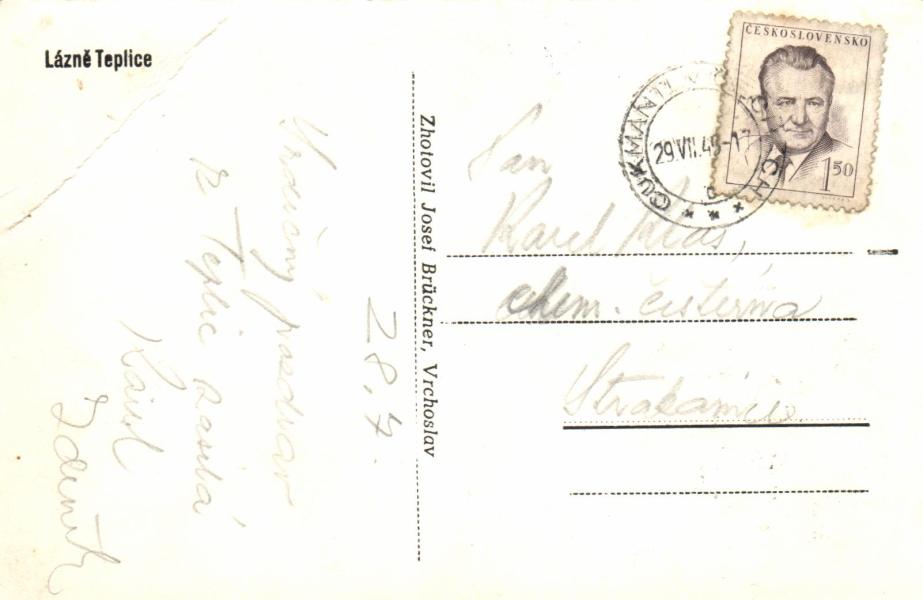 Lázně Teplice
ČESKOSLOVENSKO
1 50
CUKMANTL
29.VII.4
Zhotovil Josef Brückner, Vrchoslav
28.7.
Srdečný pozdrav
z Teplic zasílá
Zdeněk
Pan
Karel
chem. čistírna
Strakonice